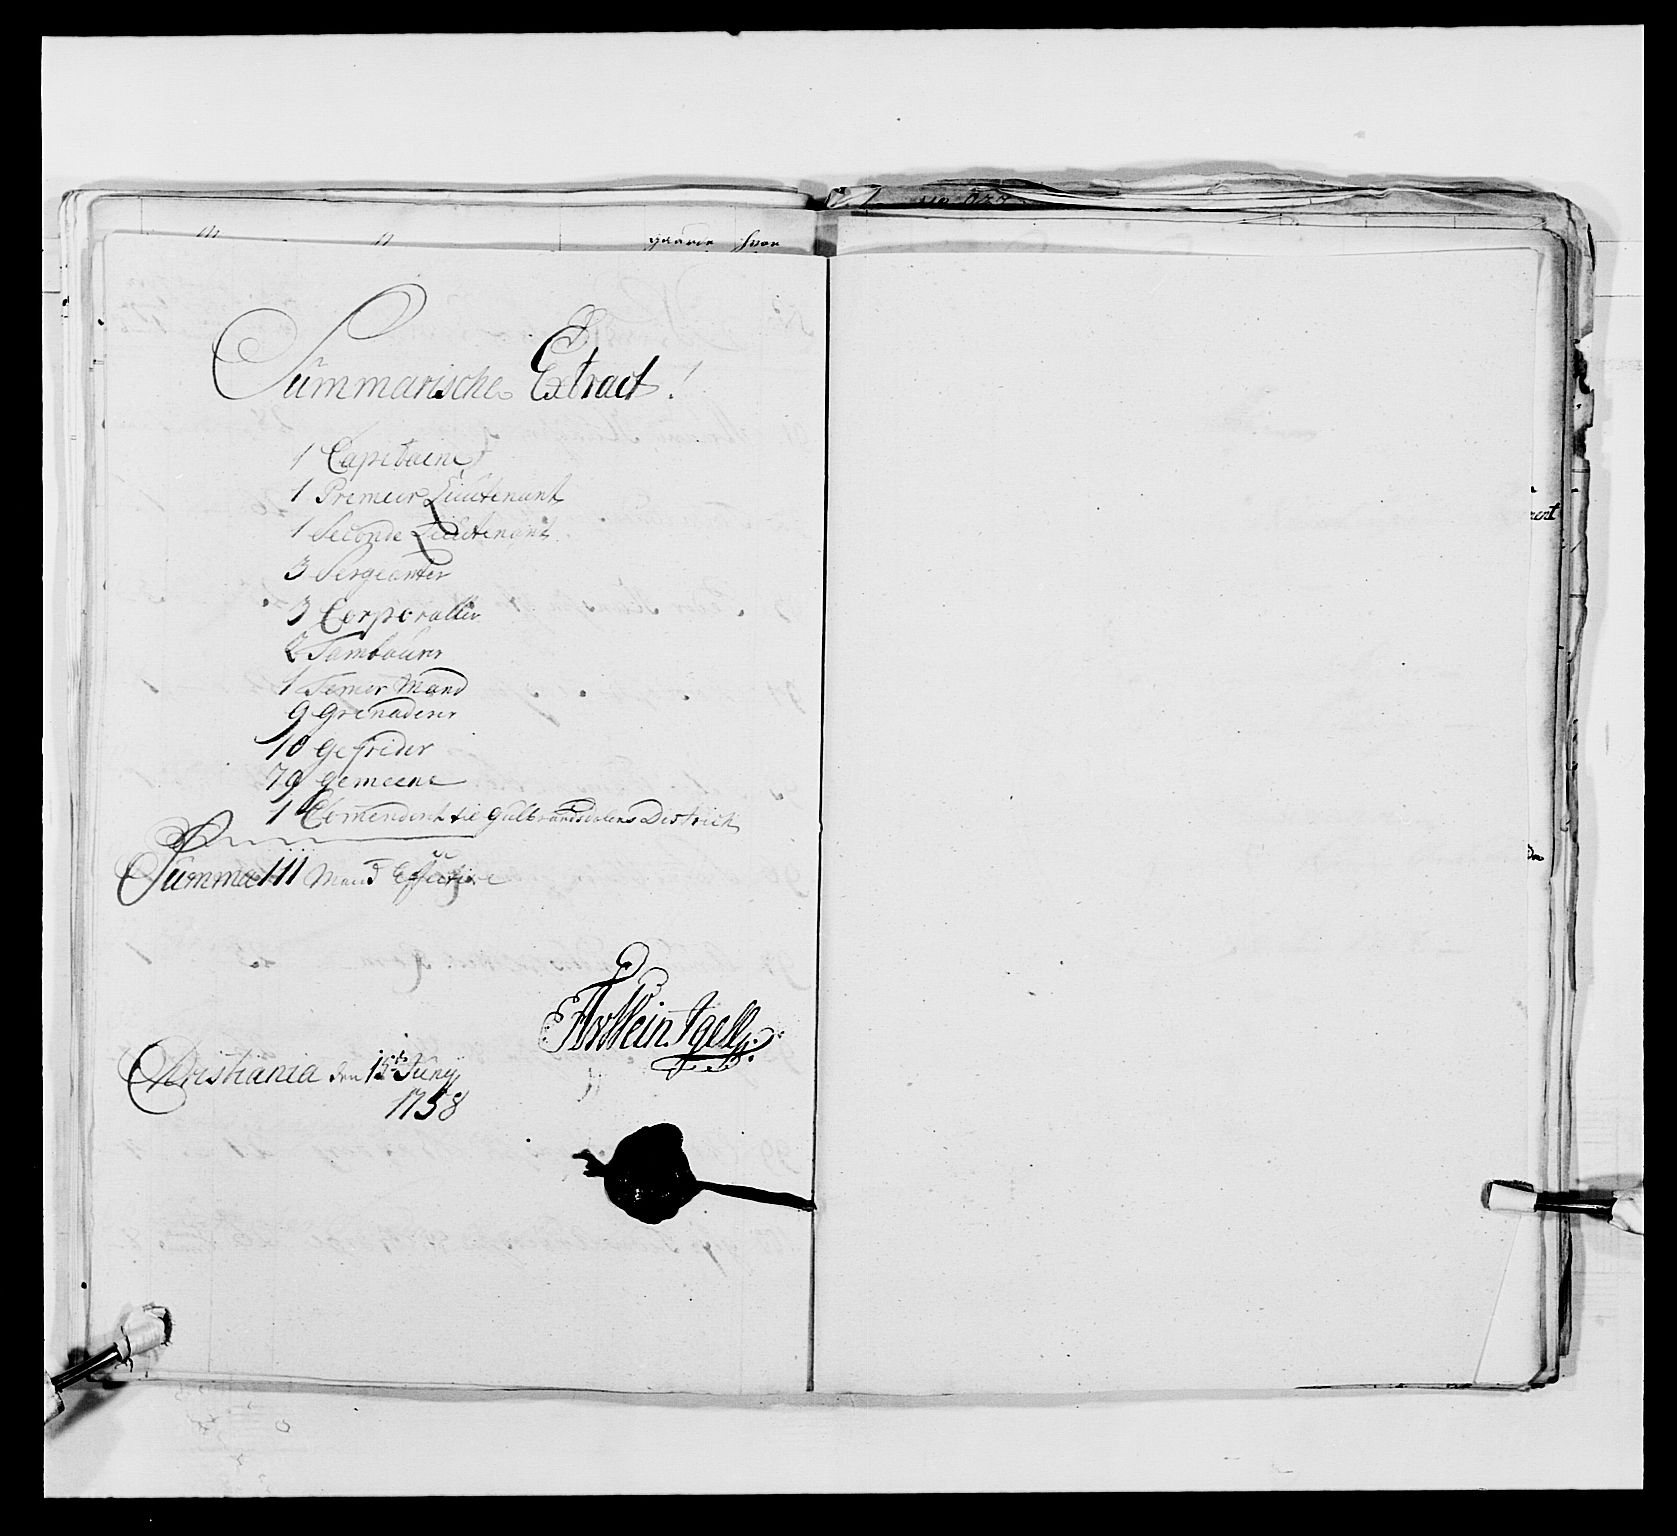 gaarde hvor
Summarische Extract!
1 Capitaine
1 Premeir Lieutenant
1 Seconde Lieutenant
3 Sergeanter
3 Corporaller
2 Tambourer
1 Temer Mand
9 Grenaderer
10 Gefrider
79 Gemeene
1 Comendert til Gulbrandsdalens District
Summa 111 Mand Effective
Christiania den 15de Juny
1758